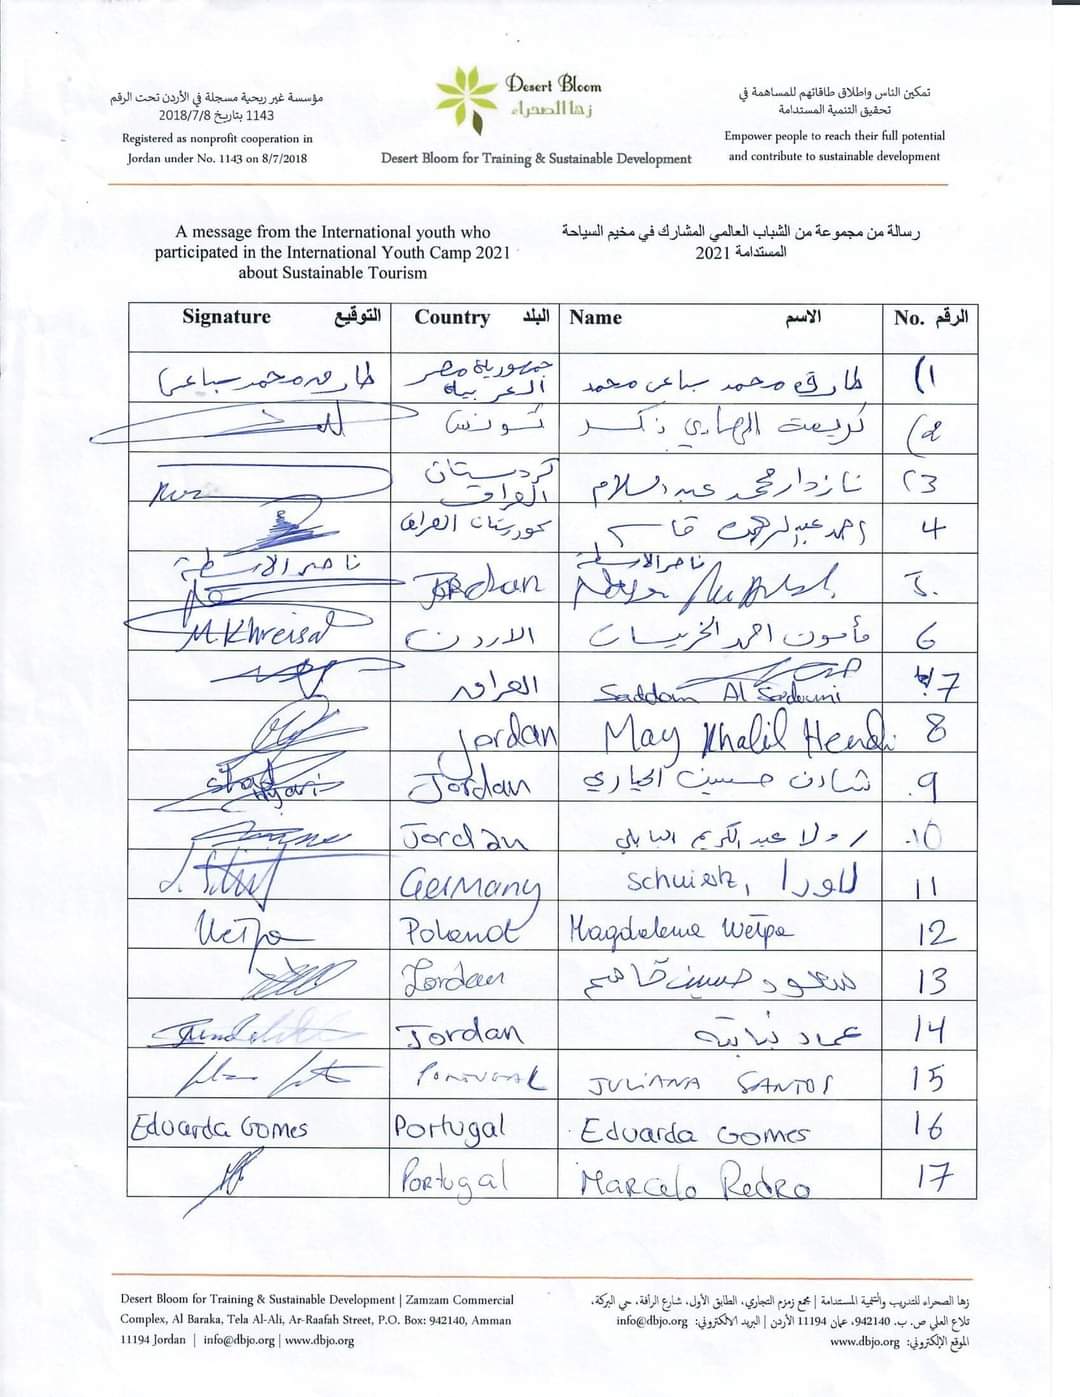 مؤسسة غير ربحية مسجلة في الأردن تحت الرقم
1143 بتاريخ 2018/7/8
Registered as nonprofit cooperation in
Jordan under No. 1143 on 8/7/2018
Desert Bloom
زها الصحراء
Desert Bloom for Training & Sustainable Development
تمكين الناس واطلاق طاقاتهم للمساهمة في
تحقيق التنمية المستدامة
Empower people to reach their full potential
and contribute to sustainable development
A message from the International youth who
participated in the International Youth Camp 2021
about Sustainable Tourism
رسالة من مجموعة من الشباب العالمي المشارك في مخيم السياحة
المستدامة 2021
Signature التوقيع Country البلد Name الاسم No. الرقم
طارق محمد سباعي جمهورية مصر العربية طارق محمد سباعي محمد 1)
تونس كريمة 2)
كردستان العراق نازدار محمد عبد السلام 3)
العراق احمد عبدالرحمن قاسم 4
ناصر الاسطة Jordan ناصر الاسطة 5.
M.Khreisat الاردن مأمون احمد الخريسات 6
العراق Saddam Al Sadouni 7
Jordan May Khalil Hendi 8
Shad Hyari Jordan شادن حسين الحياري 9
Jordan رولا عبد الكريم البابلي 10
Germany لاورا 11
Wetpa Poland Magdalena Wetpa 12
Jordan سعود حسين قاسم 13
Jordan عماد نباتة 14
PORTUGAL JULIANA SANTOS 15
Eduarda Gomes Portugal Eduarda Gomes 16
Portugal Marcelo Pedro 17
Desert Bloom for Training & Sustainable Development | Zamzam Commercial
Complex, Al Baraka, Tela Al-Ali, Ar-Raafah Street, P.O. Box: 942140, Amman
11194 Jordan | info@dbjo.org | www.dbjo.org
زها الصحراء للتدريب والتنمية المستدامة | مجمع زمزم التجاري، الطابق الأول، شارع الرأفة، حي البركة،
تلاع العلي ص. ب. 942140، عمان 11194 الأردن | البريد الالكتروني: info@dbjo.org
الموقع الإلكتروني: www.dbjo.org